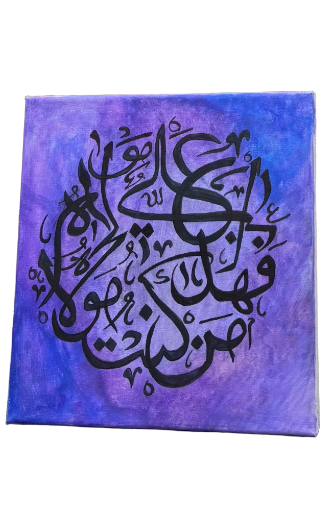 من كنت مولاه
فهذا علي مولاه